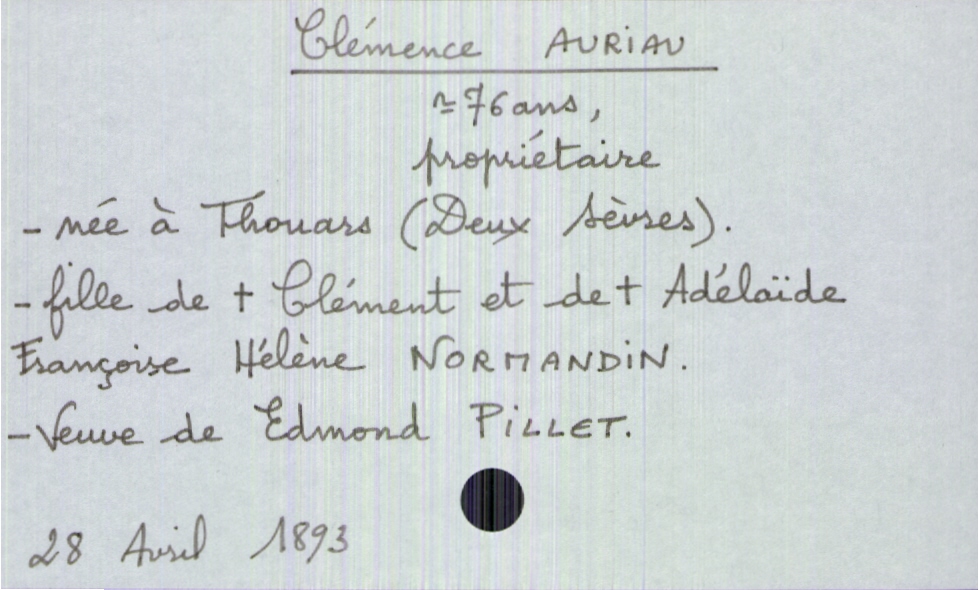 Clémence AURIAU
≃76 ans,
propriétaire
- née à Thouars (Deux Sèvres).
- fille de + Clément et de + Adélaïde
Françoise Hélène NORMANDIN.
- Veuve de Edmond PILLET.
28 Avril 1893